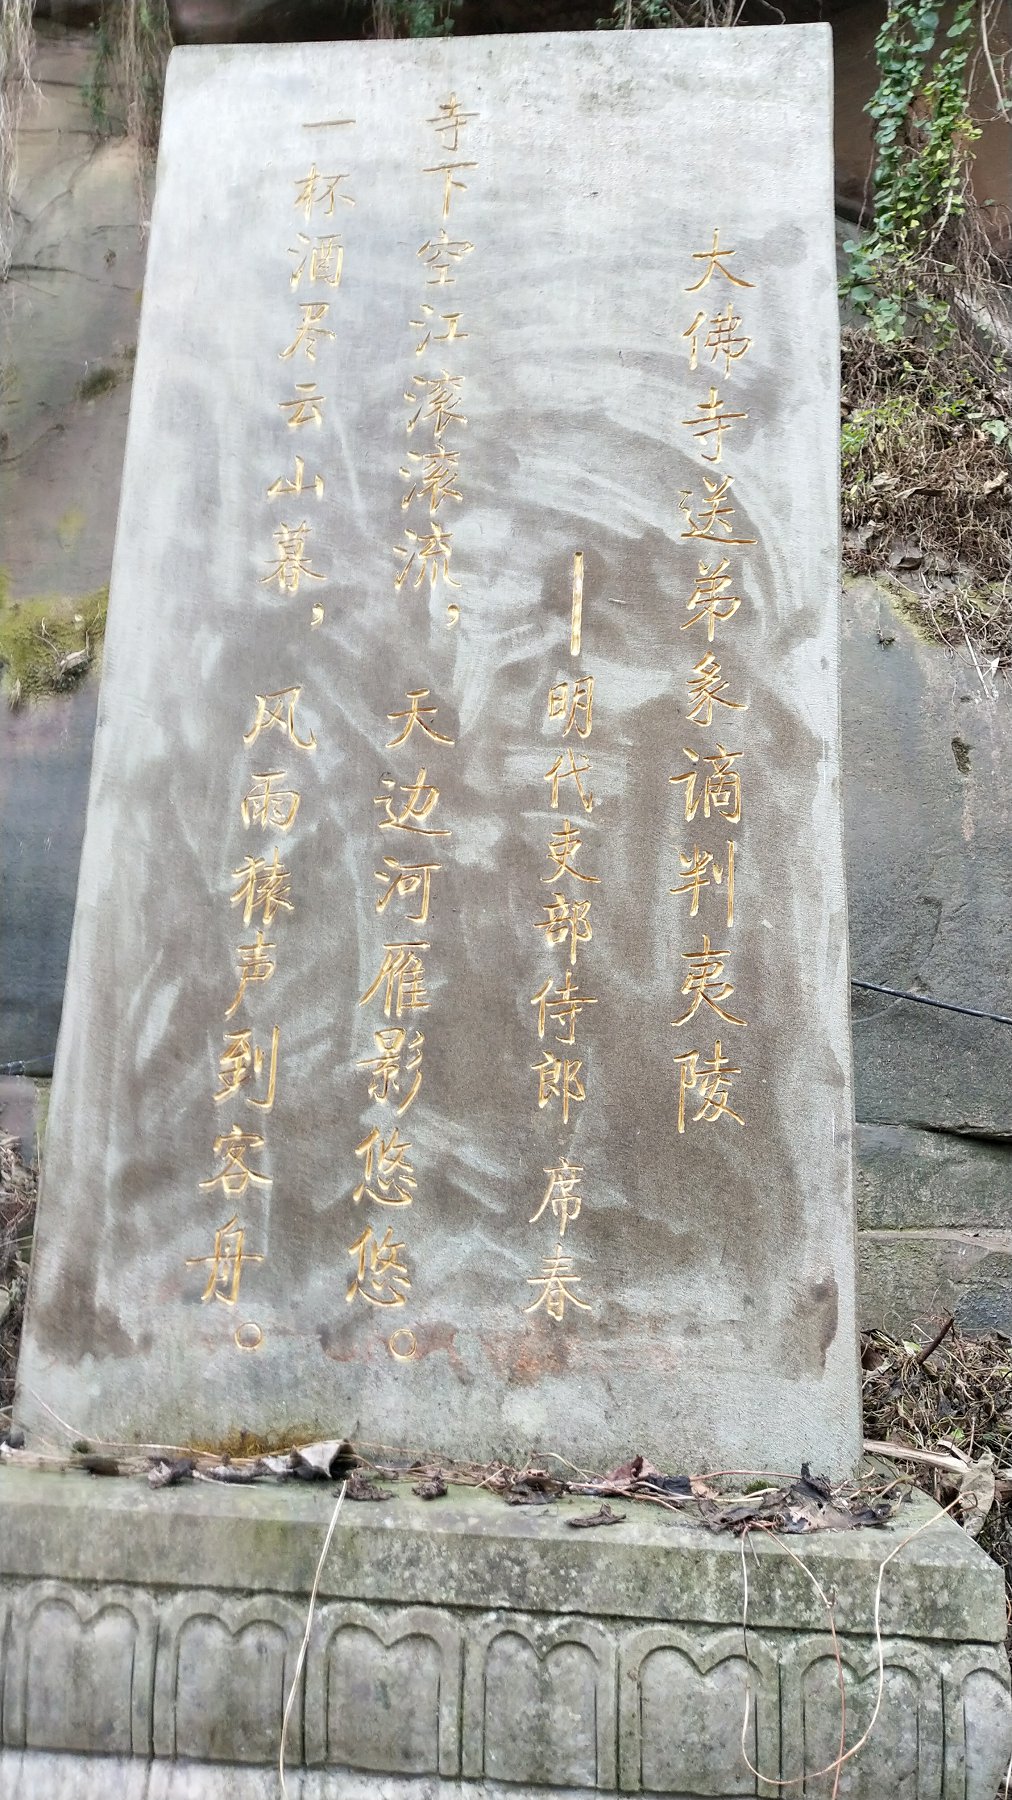 大佛寺送弟象谪判夷陵
—明代吏部侍郎 席春
寺下空江滚滚流，天边河雁影悠悠。
一杯酒尽云山暮，风雨猿声到客舟。